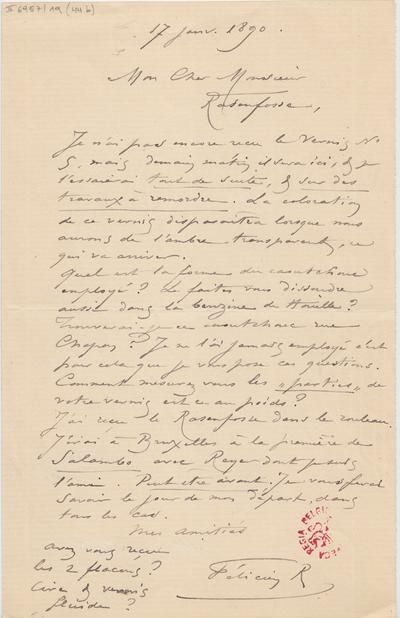 II 6957/19 (44 b)
17 janv. 1890.
Mon Cher Monsieur
Rasenfosse,
Je n'ai pas encore reçu le Vernis No
5, mais demain matin il sera ici, & je
l'essaierai tout de suite, & sur des
travaux à remordre. La coloration
de ce vernis disparaitra lorsque nous
aurons de l'ambre transparent, ce
qui va arriver.
Quel est la forme du caoutchouc
employé? Le faites vous dissoudre
aussi dans la benzine de Houille?
Trouverai-je ce caoutchouc rue
Chapon? Je ne l'ai jamais employé c'est
pour cela que je vous pose ces questions.
Comment mesurez vous les "parties" de
votre vernis est ce au poids?
J'ai reçu le Rasenfosse dans le rouleau.
J'irai à Bruxelles à la première de
Salambo avec Reyer dont je suis
l'ami. Peut etre avant. Je vous ferai
savoir le jour de mon départ, dans
tous les cas.
Mes amitiés
Félicien R
avez vous reçu
les 2 flacons?
Cire & vernis
fluide?
REGIA BELGICA